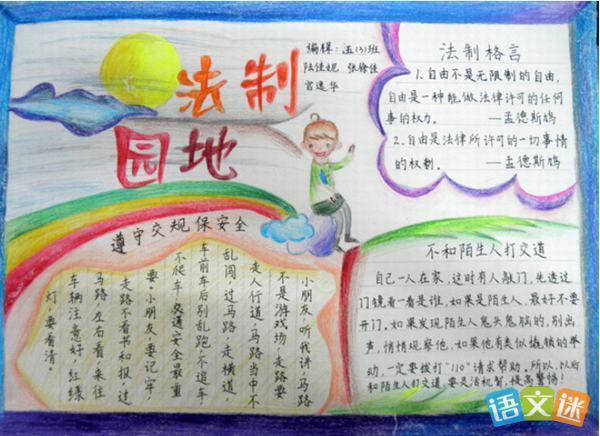 法制
园地
编辑：五(3)班
陆佳妮 张徐佳
宫逸华
法制格言
1.自由不是无限制的自由,
自由是一种能做法律许可的任何
事的权力。 —孟德斯鸠
2.自由是法律所许可的一切事情
的权利。 —孟德斯鸠
遵守交规保安全
小朋友,听我讲,马路
不是游戏场,走路要
走人行道,马路当中不
乱闯,过马路,走横道
车前车后别乱跑,不追车
不爬车,交通安全最重
要,小朋友,要记牢
走路不看书和报,过
马路左右看,来往
车辆注意好,红绿
灯,要看清。
不和陌生人打交道
自己一人在家,这时有人敲门,先透过
门镜看一看是谁,如果是陌生人,最好不要
开门。如果发现陌生人鬼头鬼脑的,别出
声,悄悄观察他,如果他有类似撬锁的举
动,一定要拨打"110"请求帮助。所以,以后
和陌生人打交道,要灵活机智,提高警惕!
语文迷